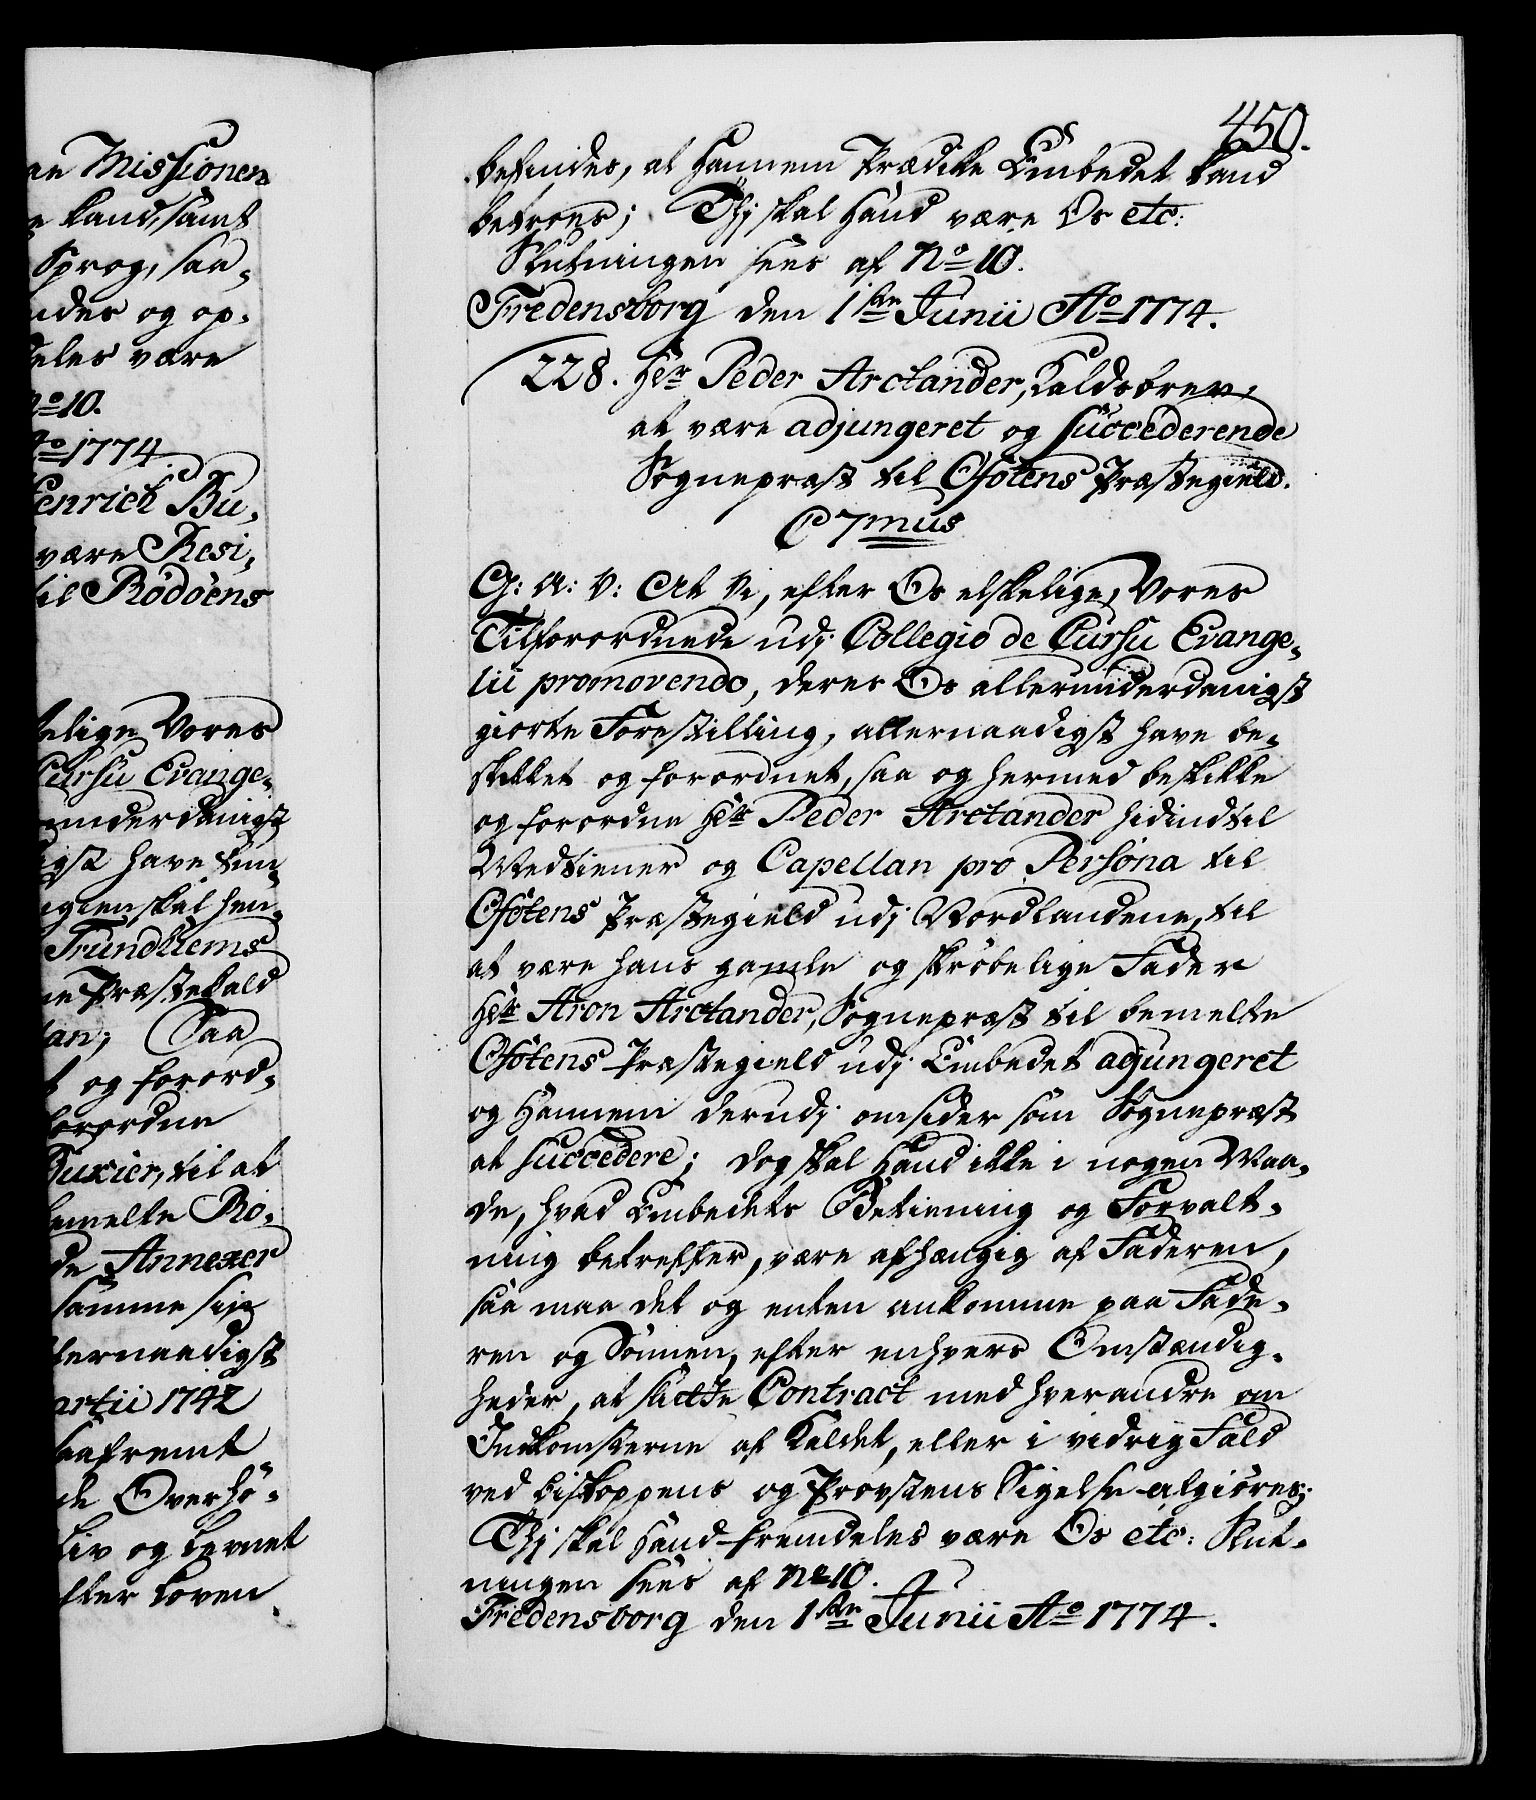 an Missionen
e Land, samt
Sprog, saa-
ndes og op-
deles være
No 10.
Ao 1774
Henrich Bu-
være Resi-
til Rödöens
kelige Vores
Cursu Evange-
underdanigst
igst have fun-
Trundhiems
ne Præstekald
lan; Saa
t og forord-
forordne
Buxier, til at
bemelte Rö-
de Annexer
samme sig
lernaadigst
artii 1742
saafremt
de Overhö-
Liv og Levnet
fter Loven.
450.
befindes, at Hannem Prædike Embedet kand
betroes; Thj skal Hand være Os etc:
Slutningen sees af No 10.
Fredensborg den 1ste Junii Ao 1774.
228. Hr Peder Arctander, Kaldsbrev,
at være adjungeret og succederende
Sognepræst til Ofotens Præstegield.
C 7mus
G: A: V: At Vi, efter Os elskelige, Vores
Tilforordnede udj Collegio de Cursu Evange-
lii promovendo, deres Os allerunderdanigst
giorte Forestilling, allernaadigst have be-
skikket og forordnet, saa og hermed beskikke
og forordne Hr Peder Arctander hidindtil
Medtiener og Capellan pro Persona til
Ofotens Præstegield udj Nordlandene, til
at være hans gamle og skröbelige Fader
Hr Aron Arctander, Sognepræst til bemelte
Ofotens Præstegield udj Embedet adjungeret
og Hannem derudj omsider som Sognepræst
at succedere; dog skal Hand ikke i nogen Maa-
de, hvad Embedets Betiening og Forvalt-
ning betreffer, være afhængig af Faderen,
saa maa det og enten ankomme paa Fade-
ren og Sönnen, efter enhvers Omstændig-
heder, at slutte Contract med hverandre om
Indkomsterne af Kaldet, eller i vidrig Fald
ved Biskoppens og Provstens Sigelse afgiöres;
Thj skal Hand fremdeles være Os etc: Slut-
ningen sees af No 10.
Fredensborg den 1ste Junii Ao 1774.